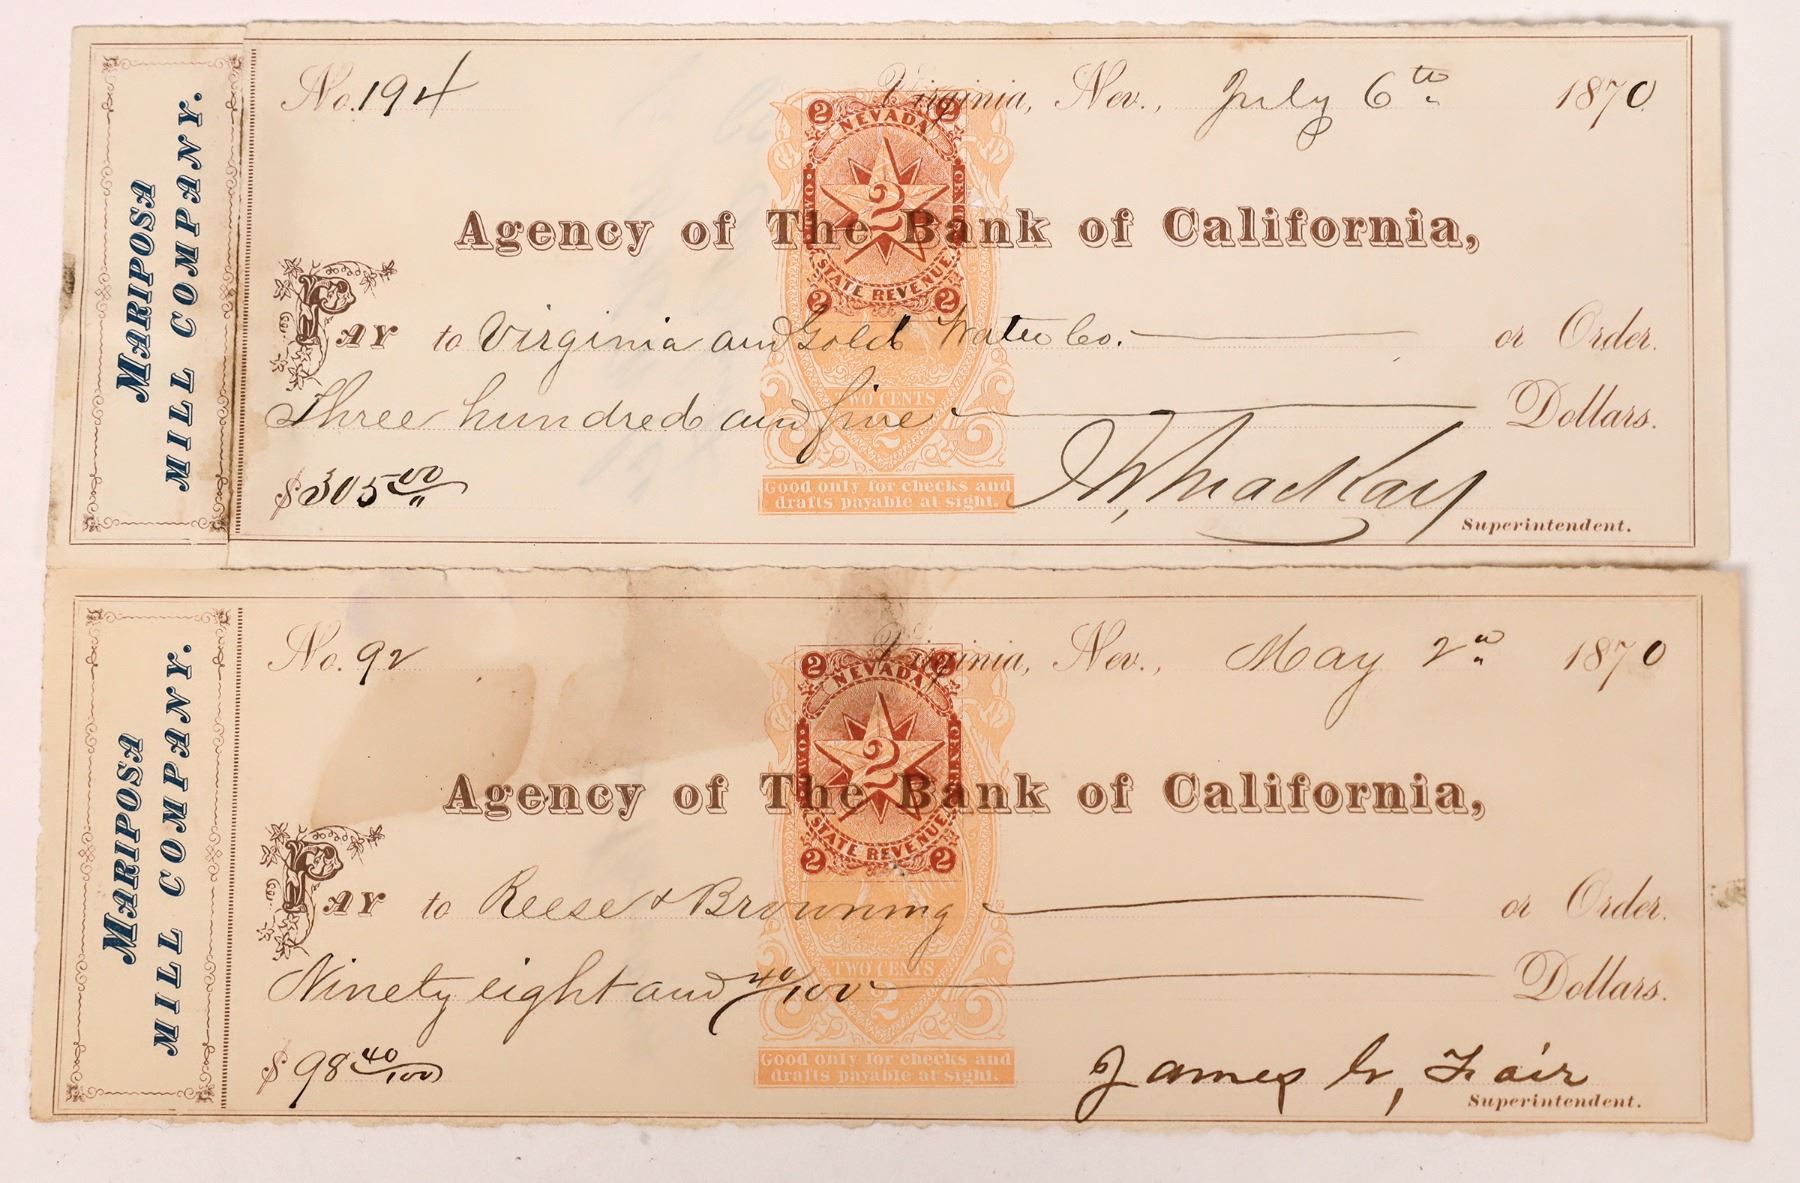 MARIPOSA
MILL COMPANY.
No. 194 Virginia, Nev., July 6th 1870
2 NEVADA 2
TWO 2 CENTS
Agency of The Bank of California,
2 STATE REVENUE 2
PAY to Virginia and Gold Water Co. or Order.
TWO CENTS
Three hundred and five Dollars.
2
$305 00/"
Good only for checks and
drafts payable at sight.
JW Mackay
Superintendent.
MARIPOSA
MILL COMPANY.
No. 92 Virginia, Nev., May 2nd 1870
2 NEVADA 2
TWO 2 CENTS
Agency of The Bank of California,
2 STATE REVENUE 2
PAY to Reese & Browning or Order.
TWO CENTS
Ninety eight and 40/100 Dollars.
2
$98 40/100
Good only for checks and
drafts payable at sight.
James G. Fair
Superintendent.